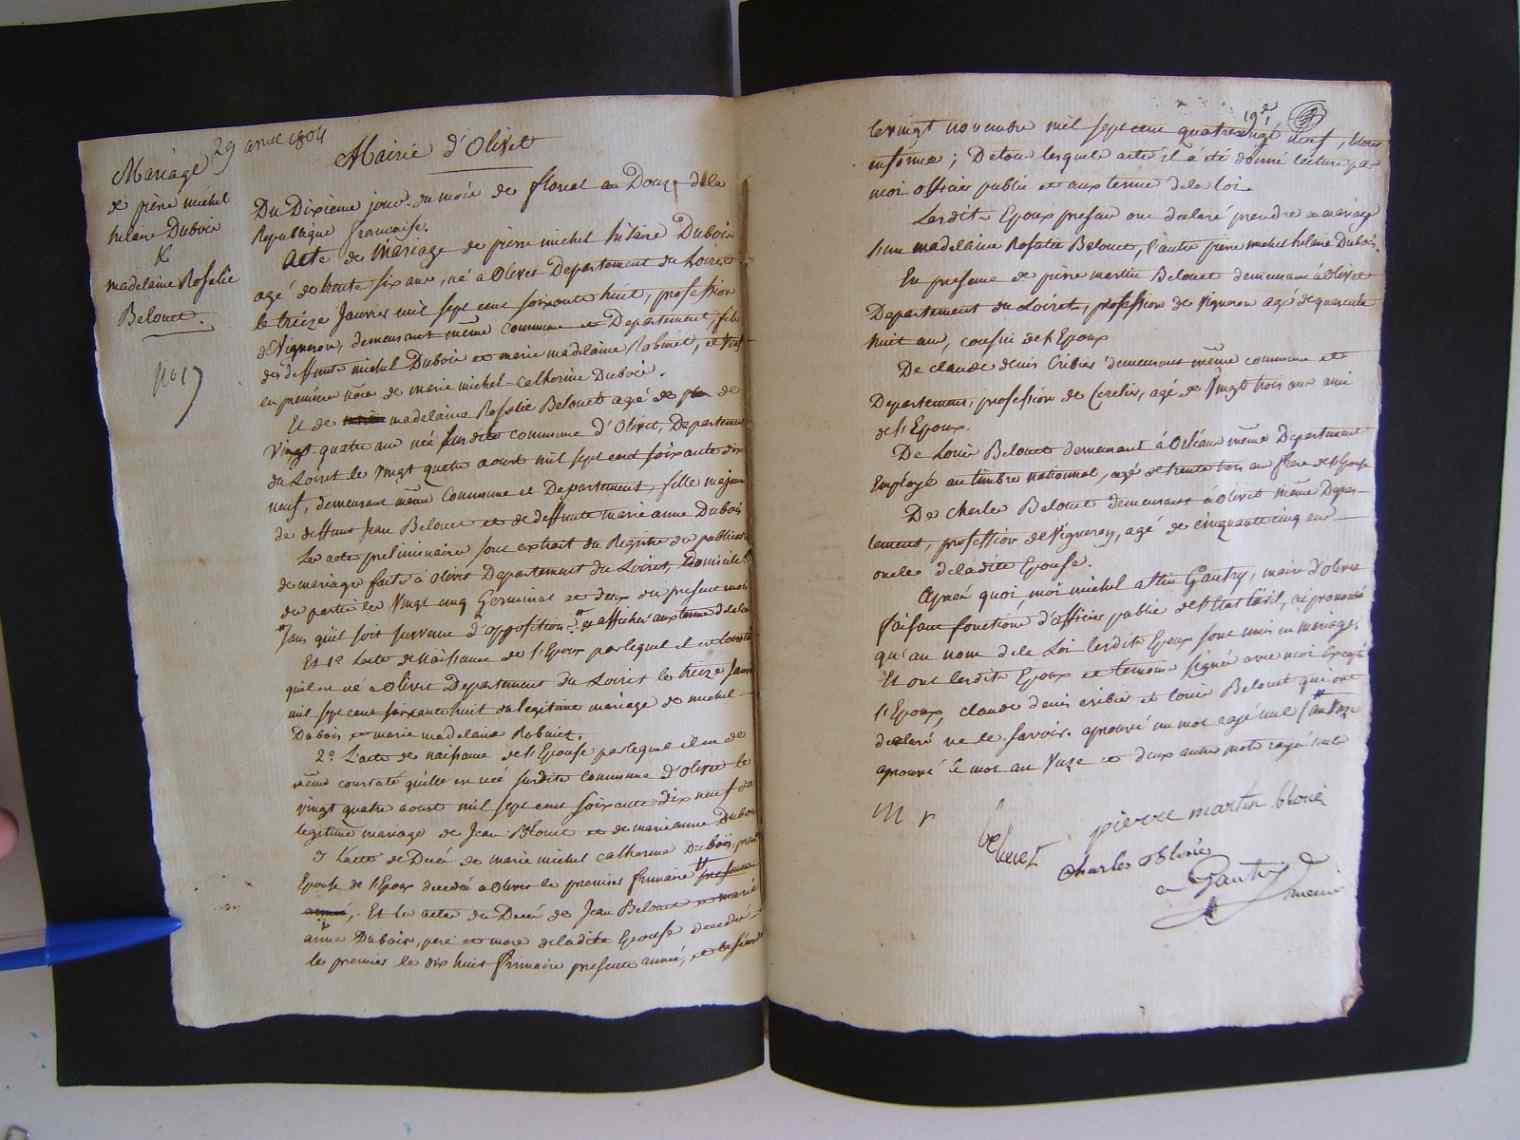 29 avril 1804
Mairie d'Olivet
Mariage
de pierre michel
hilaire Dubois
&
madelaine Rosalie
Belouet.
No 17
Du Dixieme jour du mois de floreal an Douze de la
Republique francaise.
Acte de Mariage de pierre michel hilaire Dubois
agé de trente six ans, né a Olivet Departement du Loiret
le treize Janvier mil sept cent soixante huit, profession
de Vigneron, demeurant meme Commune et Departement, fils
des deffunts michel Dubois et marie madelaine Robinet, et Veuf
en premiere nôce de marie michel Catherine Dubois.
Et de madelaine Rosalie Belouet agé de de
Vingt quatre ans née susdite commune d'Olivet, Departement
du Loiret le Vingt quatre aoust mil sept cent soixante dix
neuf, demeurant même Commune et Departement, fille majeure
de deffunt Jean Belouet et de deffunte marie anne Dubois
Les acte preliminaires sont extrait du Registre de publication
de mariage faite à Olivet Departement du Loiret, Domicile
des parties les Vingt cinq Germinal et deux du present mois
sans qu'il soit survenu d'opposition et afficher aux terme de la loi
Et 1º Lacte de Naissance de l'Epoux par lequel il est constaté
quil est né a Olivet Departement du Loiret le treize Janvier
mil sept cent soixante huit du legitime mariage de michel
Dubois et marie madelaine Robinet.
2º L'acte de naissance de l'Epouse par lequel il est de
même constaté qu'elle est née susdite Commune d'olivet le
vingt quatre aoust mil sept cent soixante dix neuf du
legitime mariage de Jean Blouet et de marie anne Dubois
3 L'acte de Decés de marie michel catherine Dubois, premiere
Epouse de l'Epoux decedée a Olivet le premier frimaire presente
année, Et les actes de Decés de Jean Belouet et marie
anne Dubois, pere et mere de ladite Epouse decedés
le premier le dix huit frimaire presente année, et la seconde
191
le vingt novembre mil sept cent quatrevingt neuf,
en forme; De tous lesquels actes il a été donné lecture par
moi officier public et aux terme de la loi
Lesdits Epoux present ont declaré prendre en mariage
l'une madelaine Rosalie Belouet, l'autre pierre michel hilaire Dubois.
En presence de pierre martin Belouet demeurant à Olivet
Departement du Loiret, profession de Vigneron agé de quarante
huit ans, cousin de l'Epoux
De claude denis Cribier demeurant même commune et
Departement, profession de Cerclier, agé de Vingt trois ans ami
de l'Epoux.
De Louis Belouet demeurant à Orléans même Departement
Employé au timbre national, agé de trente trois ans frere de l'Epouse
De charles Belouet demeurant à olivet même Depar-
tement, profession de Vigneron, agé de cinquante cinq ans
oncle de ladite Epouse.
Aprés quoi moi michel Gautry, maire d'olivet
faisant fonctions d'officier public de l'Etat Civil, ai prononcé
qu'au nom de la Loi lesdits Epoux sont unis en mariage,
Et ont lesdits Epoux et temoins signés avec moi Excepté
l'Epoux, claude denis cribier et louis Belouet qui ont
declaré ne le savoir. aprouvé un mot rayé nul
aprouvé le mot an Onze et deux autre mots rayé nul
M r
belouet
pierre martin blouet
Charles Blouet
Gautry
maire